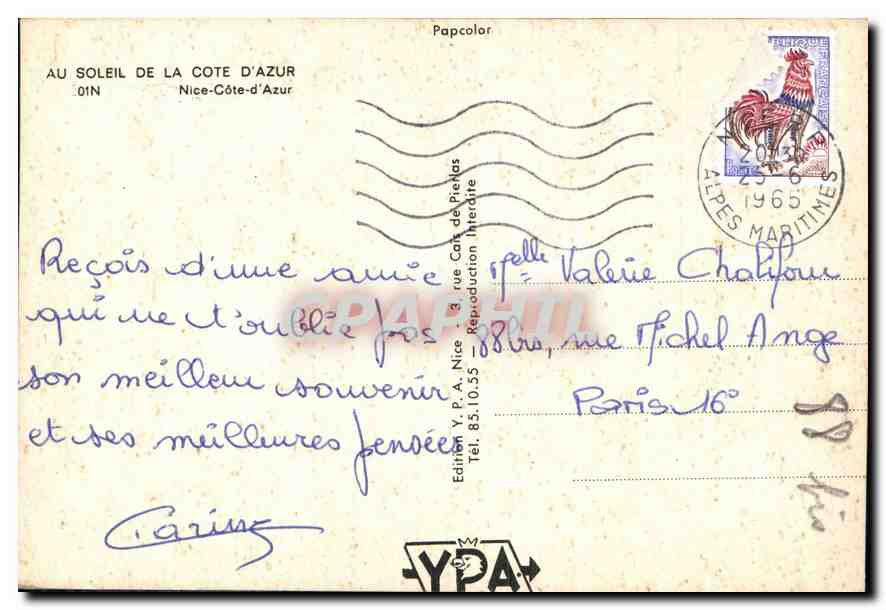 Papcolor
AU SOLEIL DE LA COTE D'AZUR
01N Nice-Côte-d'Azur
REPUBLIQUE FRANÇAISE
25-6
1965
ALPES MARITIMES
Reçois d'une amie
qui ne t'oublie pas
son meilleur souvenir
et ses meilleures pensées
Edition Y. P. A. Nice - 3, rue Cais de Pierlas
Tél. 85.10.55 - Reproduction Interdite
CPAPHIL
Melle Valérie
88bis, rue Michel Ange
Paris 16°
88 bis
YPA